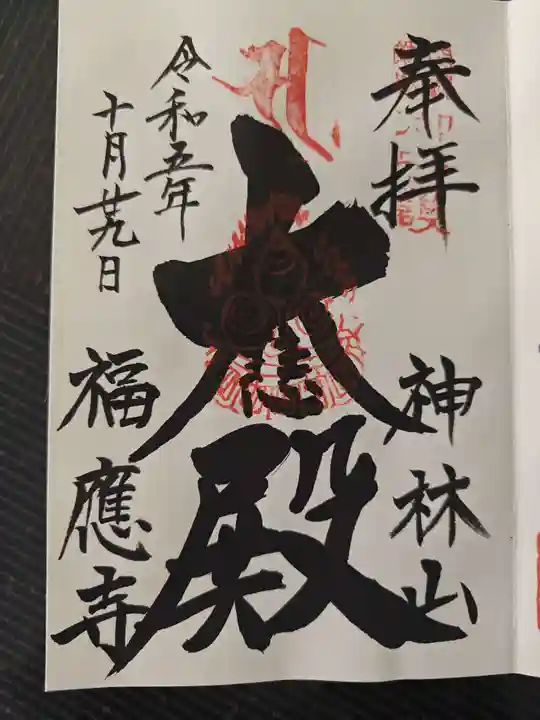 奉拝
神林山
大悲殿
令和五年
十月廿九日
福應寺